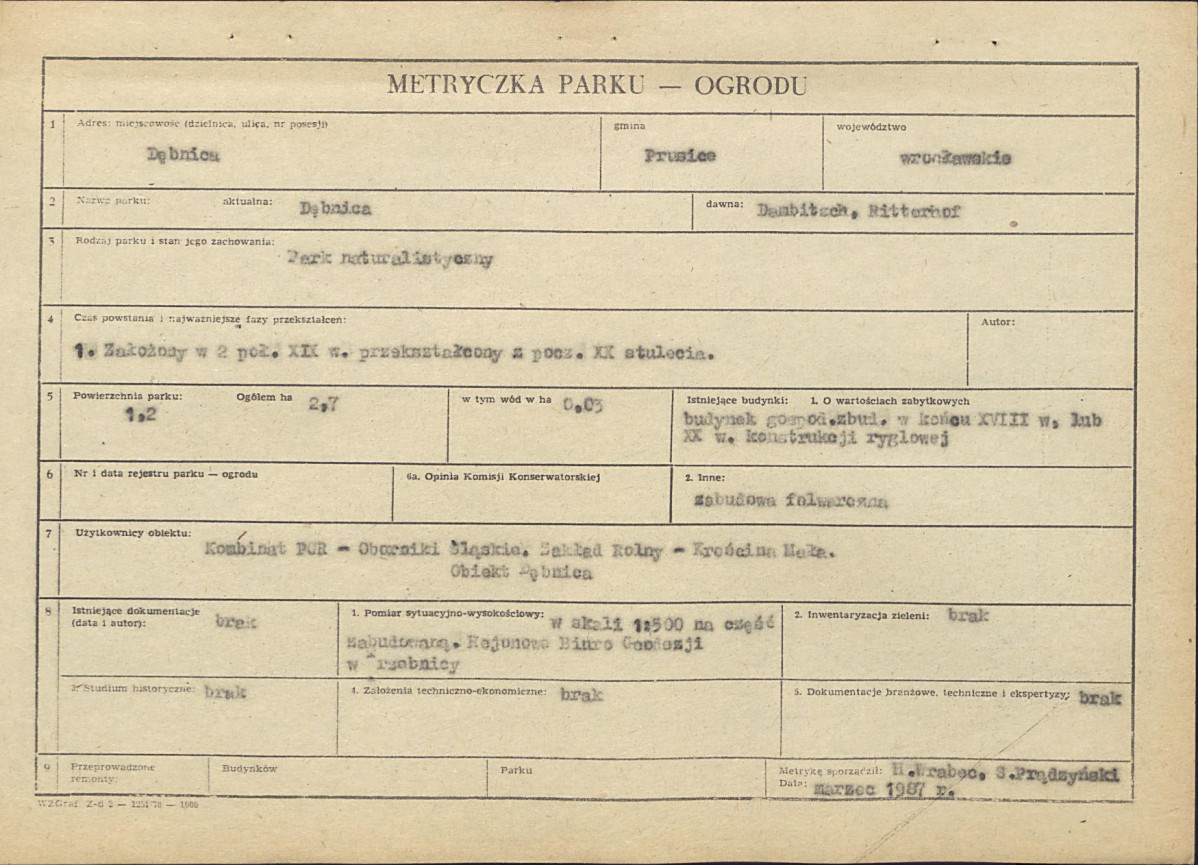 METRYCZKA PARKU — OGRODU
1 Adres: miejscowość (dzielnica, ulica, nr posesji) gmina województwo
Dębnica Prusice wrocławskie
2 Nazwa parku: aktualna: Dębnica dawna: Dambitsch, Ritterhof
3 Rodzaj parku i stan jego zachowania:
Park naturalistyczny
4 Czas powstania i najważniejsze fazy przekształceń: Autor:
1. Założony w 2 poł. XIX w. przekształcony z pocz. XX stulecia.
5 Powierzchnia parku: Ogółem ha 2,7 w tym wód w ha 0,03 Istniejące budynki: 1. O wartościach zabytkowych
1,2 budynek gospod.zbud. w końcu XVIII w. lub
XX w. konstrukcji ryglowej
6 Nr i data rejestru parku — ogrodu 6a. Opinia Komisji Konserwatorskiej 2. Inne:
zabudowa folwarczna
7 Użytkownicy obiektu:
Kombinat PGR - Oborniki Śląskie. Zakład Rolny - Krościna Mała.
Obiekt Dębnica
8 Istniejące dokumentacje
(data i autor): brak
1. Pomiar sytuacyjno-wysokościowy: w skali 1:500 na część
zabudowaną. Rejonowe Biuro Geodezji
w Trzebnicy
2. Inwentaryzacja zieleni: brak
3. Studium historyczne: brak 4. Założenia techniczno-ekonomiczne: brak 5. Dokumentacje branżowe, techniczne i ekspertyzy: brak
9 Przeprowadzone
remonty:
Budynków Parku Metrykę sporządził: H.Wrabec, S.Prądzyński
Data: marzec 1987 r.
WZGraf. Z-d 2 —